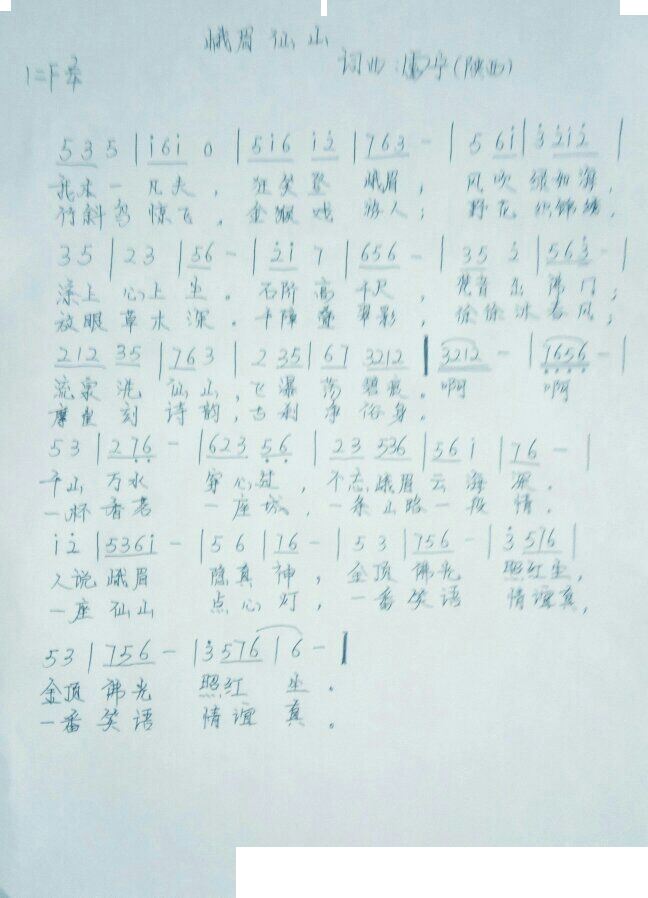 峨眉仙山
1=F 2/4 词曲:宁(陕西)
5 3 5 | i 6 i 0 | 5 i 6 i 2 | 7 6 3 - | 5 6 i | 3 2 i 2 |
我本一凡夫, 狂笑登峨眉, 风吹绿如海,
待斜鸟惊飞, 金猴戏游人; 野花织锦绣,
3 5 | 2 3 | 5 6 - | 2 i 7 | 6 5 6 - | 3 5 2 | 5 6 3 - |
心上生。石阶高千尺, 观音出佛门;
放眼草木深。千障叠翠影, 徐徐沐春风;
2 1 2 3 5 | 7 6 3 | 2 3 5 | 6 7 3 2 1 2 | 3 2 1 2 - | 7 6 5 6 - |
流泉洗仙山, 飞瀑荡碧痕。啊 啊
摩崖刻诗韵, 古刹净俗身。
5 3 | 2 7 6 - | 6 2 3 5 6 | 2 3 5 3 6 | 5 6 i | 7 6 - |
千山万水 穿心过, 不恋峨眉云海深。
一杯香茗 一座城, 一条山路一段情。
i 2 | 5 3 6 i - | 5 6 | 7 6 - | 5 3 | 7 5 6 - | 3 5 7 6 |
人说峨眉 隐真神, 金顶佛光 照红尘,
一座仙山 点心灯, 一番笑语 情谊真,
5 3 | 7 5 6 - | 3 5 7 6 | 6 - |
金顶佛光 照红尘。
一番笑语 情谊真。